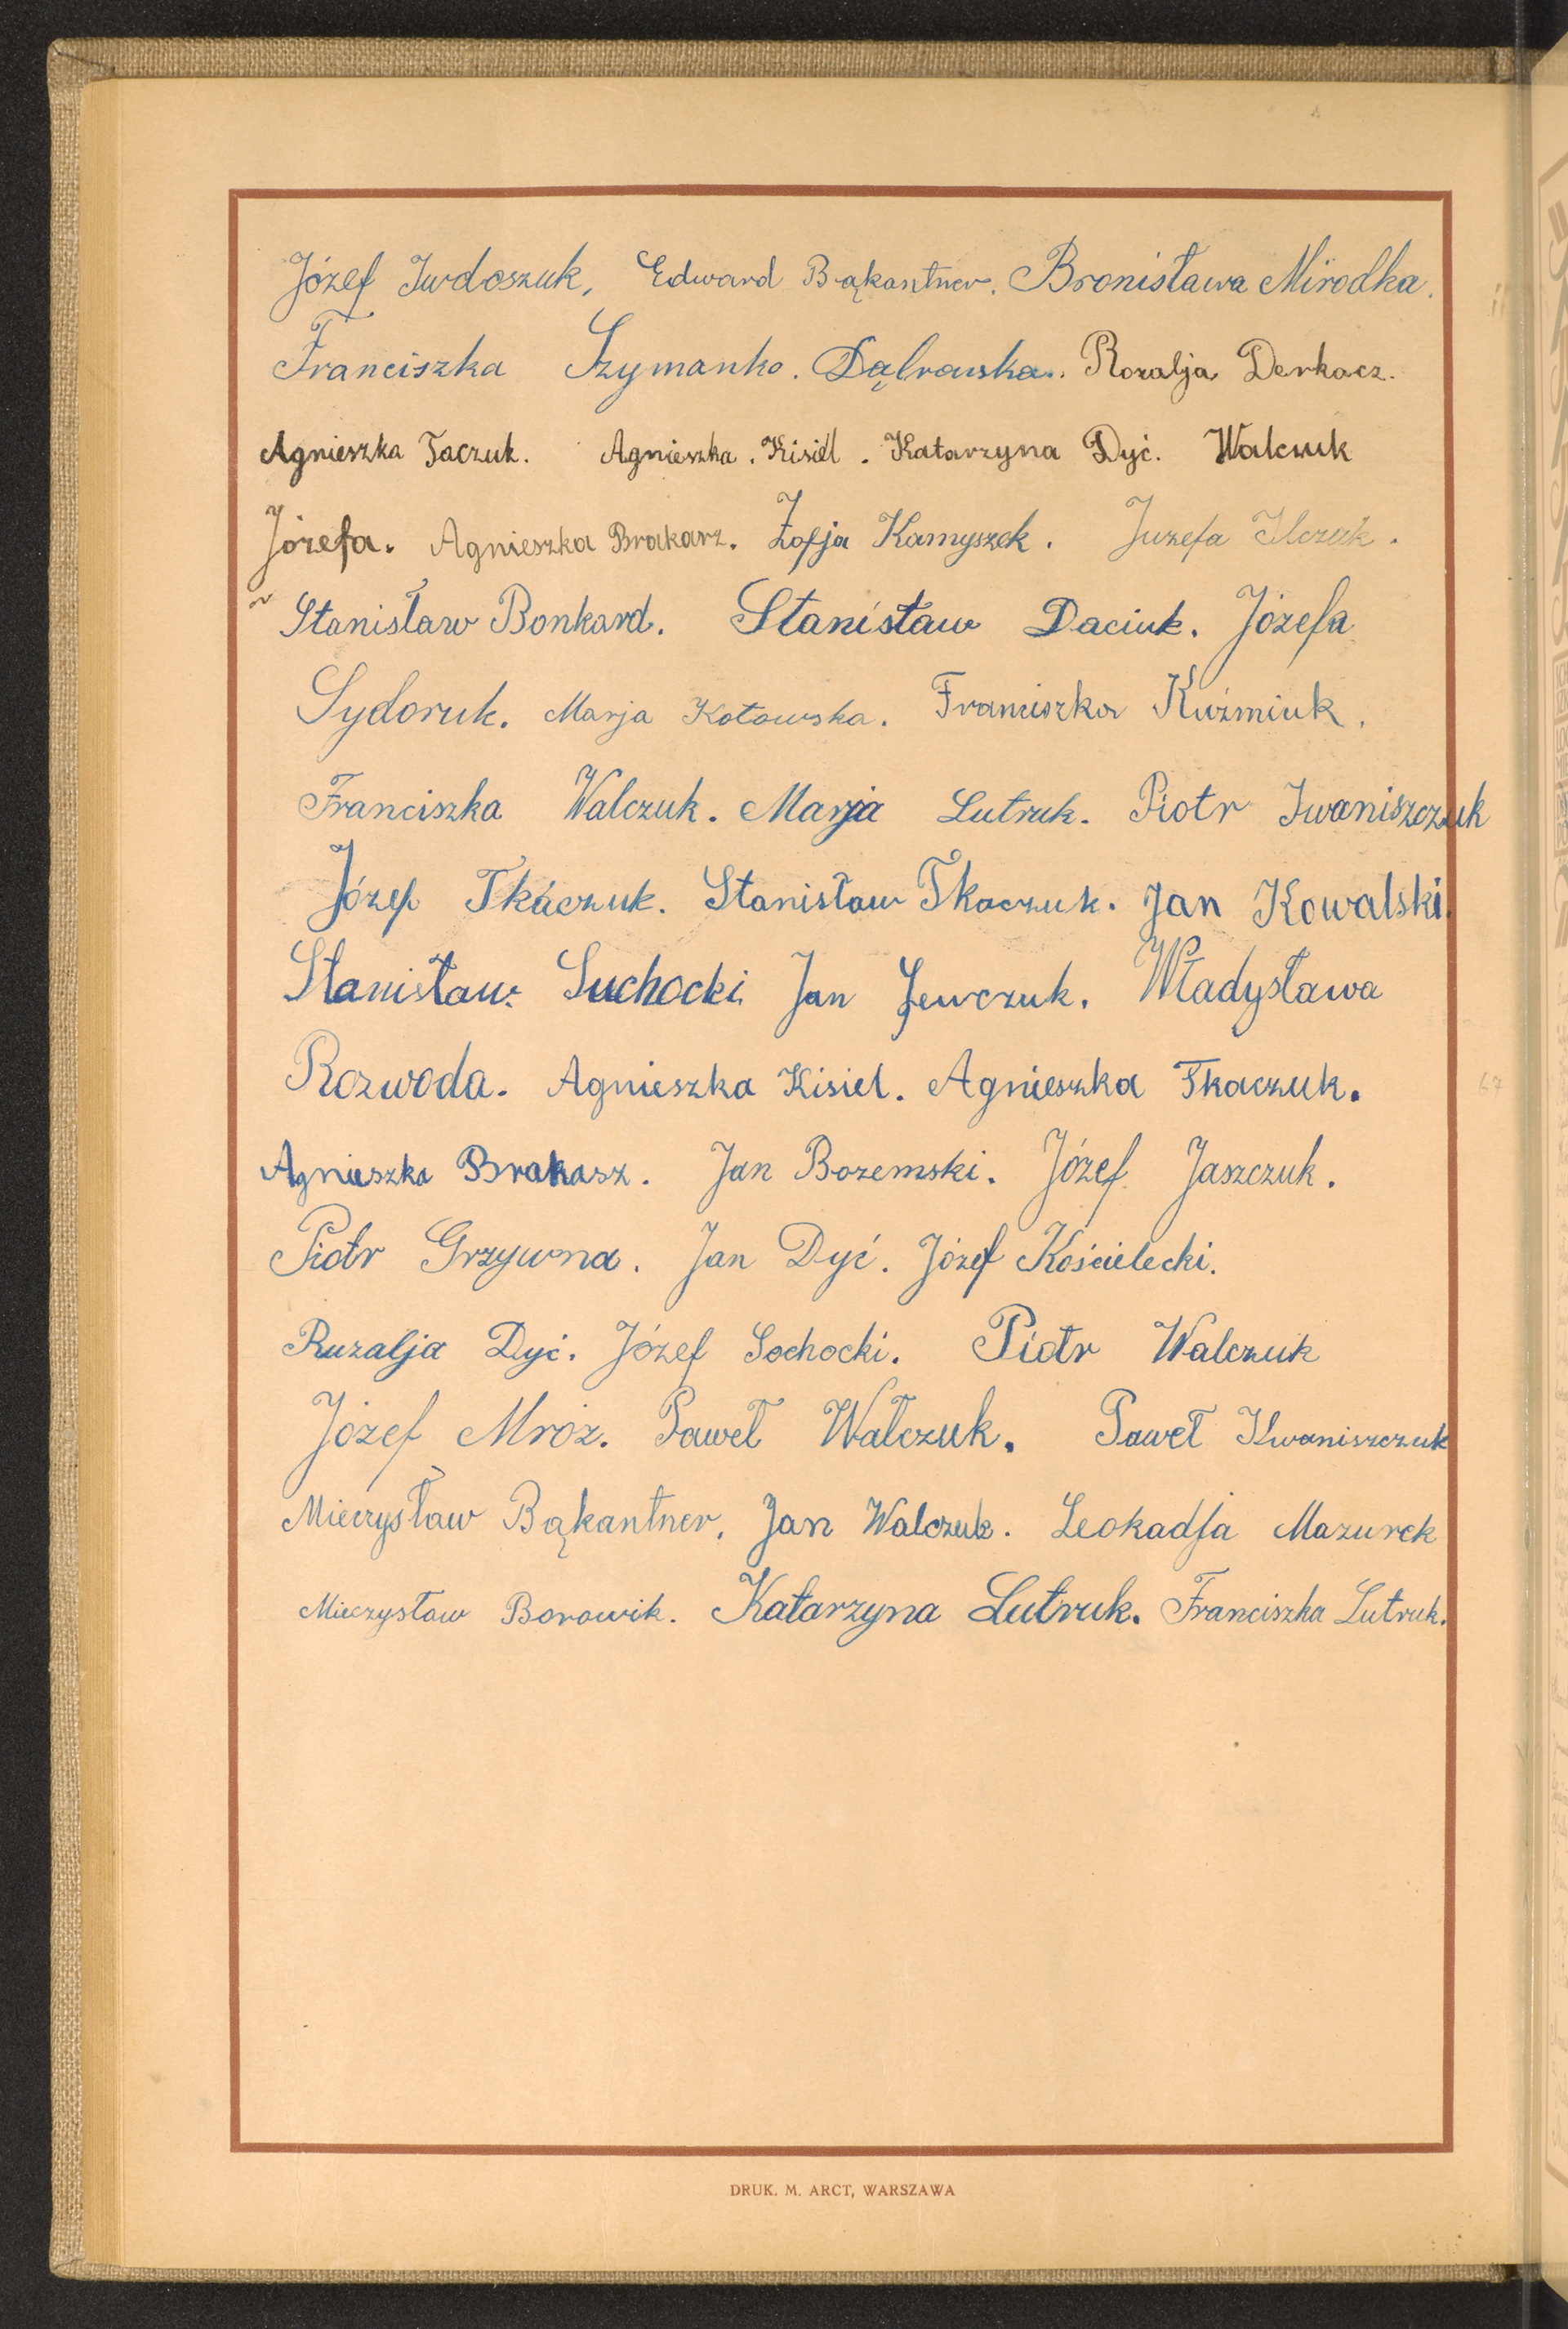 Józef Iwdoszuk, Edward Bąkantner. Bronisława Mirodka.
Franciszka Szymanko. Dąbrowska. Rozalja Derkacz.
Agnieszka Taczuk. Agnieszka. Kisiel. Katarzyna Dyć. Walczuk
Józefa. Agnieszka Brakarz. Zofja Kamyszek. Juzefa Ilczuk.
Stanisław Bonkard. Stanisław Daciuk. Józefa
Sydoruk. Marja Kotowska. Franciszka Kuźmiuk.
Franciszka Walczuk. Marja Lutruk. Piotr Iwaniszczuk
Józef Tkaczuk. Stanisław Tkaczuk. Jan Kowalski.
Stanisław. Suchocki Jan Jewczuk. Władysława
Rozwoda. Agnieszka Kisiel. Agnieszka Tkaczuk.
Agnieszka Brakasz. Jan Bozemski. Józef Jaszczuk.
Piotr Grzywna. Jan Dyć. Józef Kościelecki.
Ruzalja Dyć. Józef Sochocki. Piotr Walczuk
Józef Mróz. Paweł Wałczuk. Paweł Iwaniszczuk
Mieczysław Bąkantner. Jan Walczuk. Leokadja Mazurek
Mieczysław Borowik. Katarzyna Lutruk. Franciszka Lutruk.
67
DRUK. M. ARCT, WARSZAWA